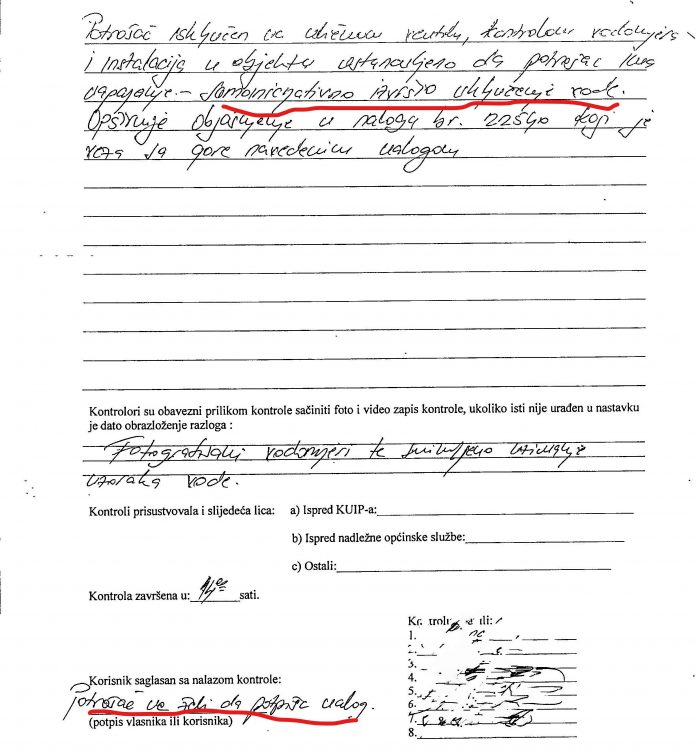 Potrošač isključen na uličnom ventilu, kontrolom vodomjera
i instalacija u objektu ustanovljeno da potrošač ima
napajanje – samoinicijativno izvršio uključenje vode.
Opširnije objašnjenje u nalogu br. 22540 koji je
veza sa gore navedenim nalogom
Kontrolori su obavezni prilikom kontrole sačiniti foto i video zapis kontrole, ukoliko isti nije urađen u nastavku
je dato obrazloženje razloga :
Fotografisani vodomjeri te snimljeno uzimanje
uzoraka vode.
Kontroli prisustvovala i slijedeća lica: a) Ispred KUIP-a:
b) Ispred nadležne općinske službe:
c) Ostali:
Kontrola završena u: 14⁰⁰ sati.
1.
2.
3.
4.
5.
6.
7.
8.
Korisnik saglasan sa nalazom kontrole:
Potrošač ne želi da potpiše nalog.
(potpis vlasnika ili korisnika)